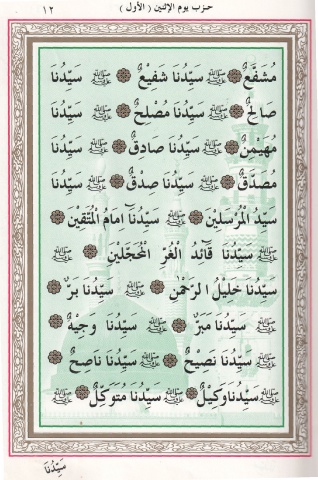 حزب يوم الإثنين ( الأول ) ١٢
مُشَفَّعٌ ۞ ﷺ سَيِّدُنَا شَفِيعٌ ۞ ﷺ سَيِّدُنَا
صَالِحٌ ۞ ﷺ سَيِّدُنَا مُصْلِحٌ ۞ ﷺ سَيِّدُنَا
مُهَيْمِنٌ ۞ ﷺ سَيِّدُنَا صَادِقٌ ۞ ﷺ سَيِّدُنَا
مُصَدَّقٌ ۞ ﷺ سَيِّدُنَا صِدْقٌ ۞ ﷺ سَيِّدُنَا
سَيِّدُ الْمُرْسَلِينَ ۞ ﷺ سَيِّدُنَا إِمَامُ الْمُتَّقِينَ ۞
ﷺ سَيِّدُنَا قَائِدُ الْغُرِّ الْمُحَجَّلِينَ ۞ ﷺ
سَيِّدُنَا خَلِيلُ الرَّحْمٰنِ ۞ ﷺ سَيِّدُنَا بَرٌّ ۞
ﷺ سَيِّدُنَا مَبَرٌّ ۞ ﷺ سَيِّدُنَا وَجِيهٌ ۞
ﷺ سَيِّدُنَا نَصِيحٌ ۞ ﷺ سَيِّدُنَا نَاصِحٌ ۞
ﷺ سَيِّدُنَا وَكِيلٌ ۞ ﷺ سَيِّدُنَا مُتَوَكِّلٌ ۞ ﷺ
سَيِّدُنَا